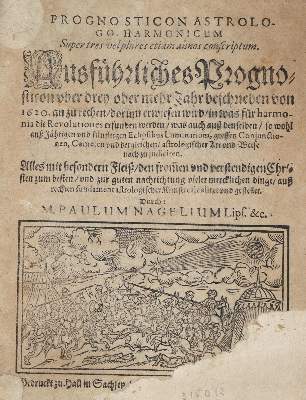 PROGNOSTICON ASTROLO-
GO-HARMONICUM
Super tres vel plures etiam annos conscriptum.
Ausführliches Progno-
sticon vber drey oder mehr Jahr beschrieben von
1620. an zu rechen / dorinn erwiesen wird / in was für harmo-
nia die Revolutiones erfunden werden / was auch auß denselben / so wohl
auß Jährigen und künfftigen Eclipsibus Luminarium, grossen Conjunctio-
nen, Cometen und dergleichen / astrologischer Art und Weise
nach
Alles mit besondern Fleiß / den frommen und verstendigen Chri-
sten zum besten / und zur guten nachrichtung vieler mercklichen dinge / auß
rechten fundament astrologischer Kunst und gestellet.
Durch:
M. PAULUM NAGELIUM Lips. &c.
Gedruckt zu Hall in Sachsen